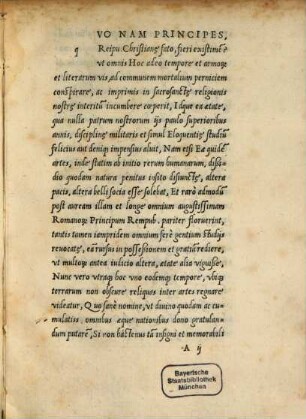 VO NAM PRINCIPES,
q
Reipu. Christianę fato, fieri existimẽ
vt omnis Hoc adeo tempore et armorũ
et literarum vis, ad communem mortalium perniciem
conspirare, ac imprimis in sacrosanctę religionis
nostrę interitũ incumbere cœperit, Idque ea ætate, qua
nulla patrum nostrorum ijs paulo superioribus
annis, disciplinę militaris et simul Eloquentię studiũ
felicius aut deniqɜ impensius aluit, Nam etsi Ea quidẽ
artes, inde statim ab initio rerum humanarum, dissi-
dio quodam natura penitus insito disiunctę, altera
pacis, altera belli socia esse solebat, Et rarò admodũ
post auream illam et longe omnium augustissimum
Romanorɋ Principum Rempub. pariter floruerint,
tantis tamen iampridem omnium ferè gentium studijs
reuocatę, ea rursus in possessionem et gratiã rediere,
vt multoqɜ antea iulicio altera, ætate alia viguisse,
Nunc vero vtraqɜ hoc vno eodemqɜ tempore, vbiqɜ
terrarum non obscure reliquas inter artes regnare
videatur, Quo sanè nomine, vt diuino quodam ac cu-
mulatiss. omnibus æque nationibus dono gratulan-
dum putarẽ, Si non hactenus tã insigni et memorabili
A ij
Bayerische
Staatsbibliothek
München